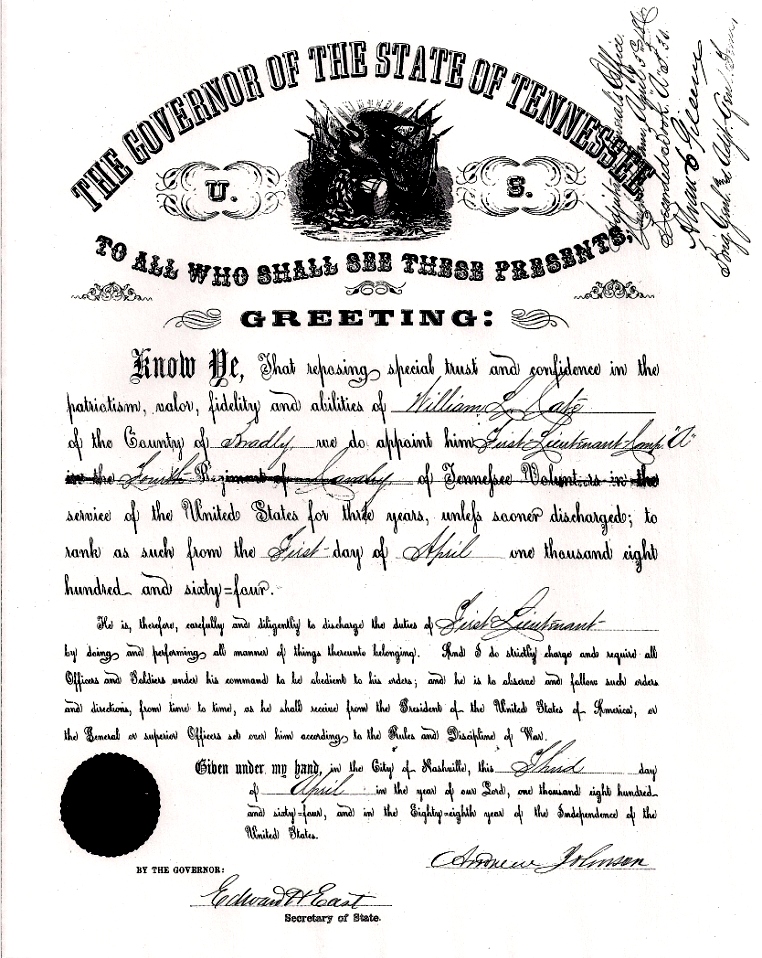 THE GOVERNOR OF THE STATE OF TENNESSEE
U. S.
TO ALL WHO SHALL SEE THESE PRESENTS,
GREETING:
Know Ye, That reposing special trust and confidence in the
patriotism, valor, fidelity and abilities of William L. Cate
of the County of Bradly we do appoint him First Lieutenant Comp. "A"
in the Fourth Regiment of Cavalry of Tennessee Volunteers in the
service of the United States for three years, unless sooner discharged; to
rank as such from the First day of April one thousand eight
hundred and sixty=four.
He is, therefore, carefully and diligently to discharge the duties of First Lieutenant
by doing and performing all manner of things thereunto belonging. And I do strictly charge and require all
Officers and Soldiers under his command to be obedient to his orders; and he is to observe and follow such orders
and directions, from time to time, as he shall receive from the President of the United States of America, or
the General or superior Officers set over him according to the Rules and Discipline of War.
Given under my hand, in the City of Nashville, this Third day
of April in the year of our Lord, one thousand eight hundred
and sixty=four, and in the Eighty=eighth year of the Independence of the
United States.
Andrew Johnson
BY THE GOVERNOR:
Edward H East
Secretary of State.
Adjutant General's Office
Recorded Book "A" P. 30.
Alvan C Gillem
Brig. Genl & Adjt. Genl. Tenn.